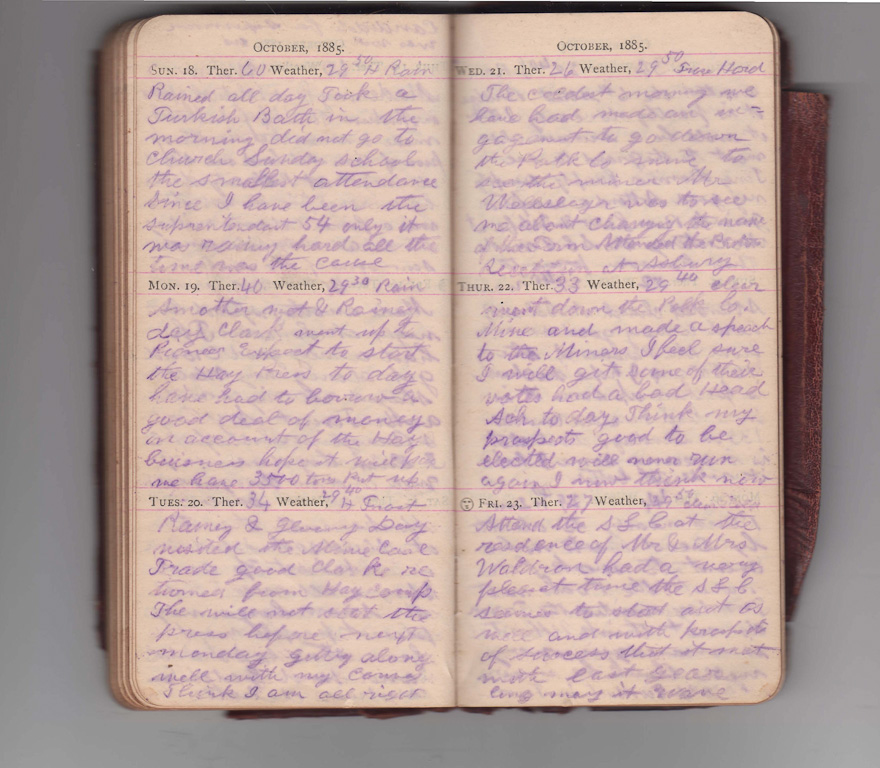 OCTOBER, 1885.
SUN. 18. Ther. 60 Weather, 29 50 H Rain
Rained all day Took a
Turkish Bath in the
morning did not go to
church Sunday school
the smallest attendance
Since I have been the
54 only it
was rainy hard all the
time was the cause
MON. 19. Ther. 40 Weather, 29 30 Rain
Another wet & Rainey
day Clark went up to
Pioneer Expect to start
the Hay Press to day
have had to borrow a
good deal of money
on account of the Hay
buisness hope it will
we have 3500 tons Put up
TUES. 20. Ther. 34 Weather, 29 40 H Frost
Rainey & Day
the
Trade good Clark re
turned from Hay camp
The will not start the
press before next
monday along
well with my
Think I am all right
OCTOBER, 1885.
WED. 21. Ther. 26 Weather, 29 50 Hard
The coldest morning we
have had made an in=
gagement to go down
the Polk Co mine to
see the miner Mr
was to see
me about changing the name
Attended the
Reception At Asbury
THUR. 22. Ther. 33 Weather, 29 40 clear
went down the Polk Co.
Mine and made a speach
to the Miners I feel sure
I will get some of their
votes had a bad Head
Ach to day Think my
prospects good to be
elected will never run
again I now think now
FRI. 23. Ther. 27 Weather,
Attend the S L C at the
residence of Mr & Mrs
Waldron had a very
plesat time the S L C.
seames to start out as
well and with prospects
of success that it met
with last year
long may it wave